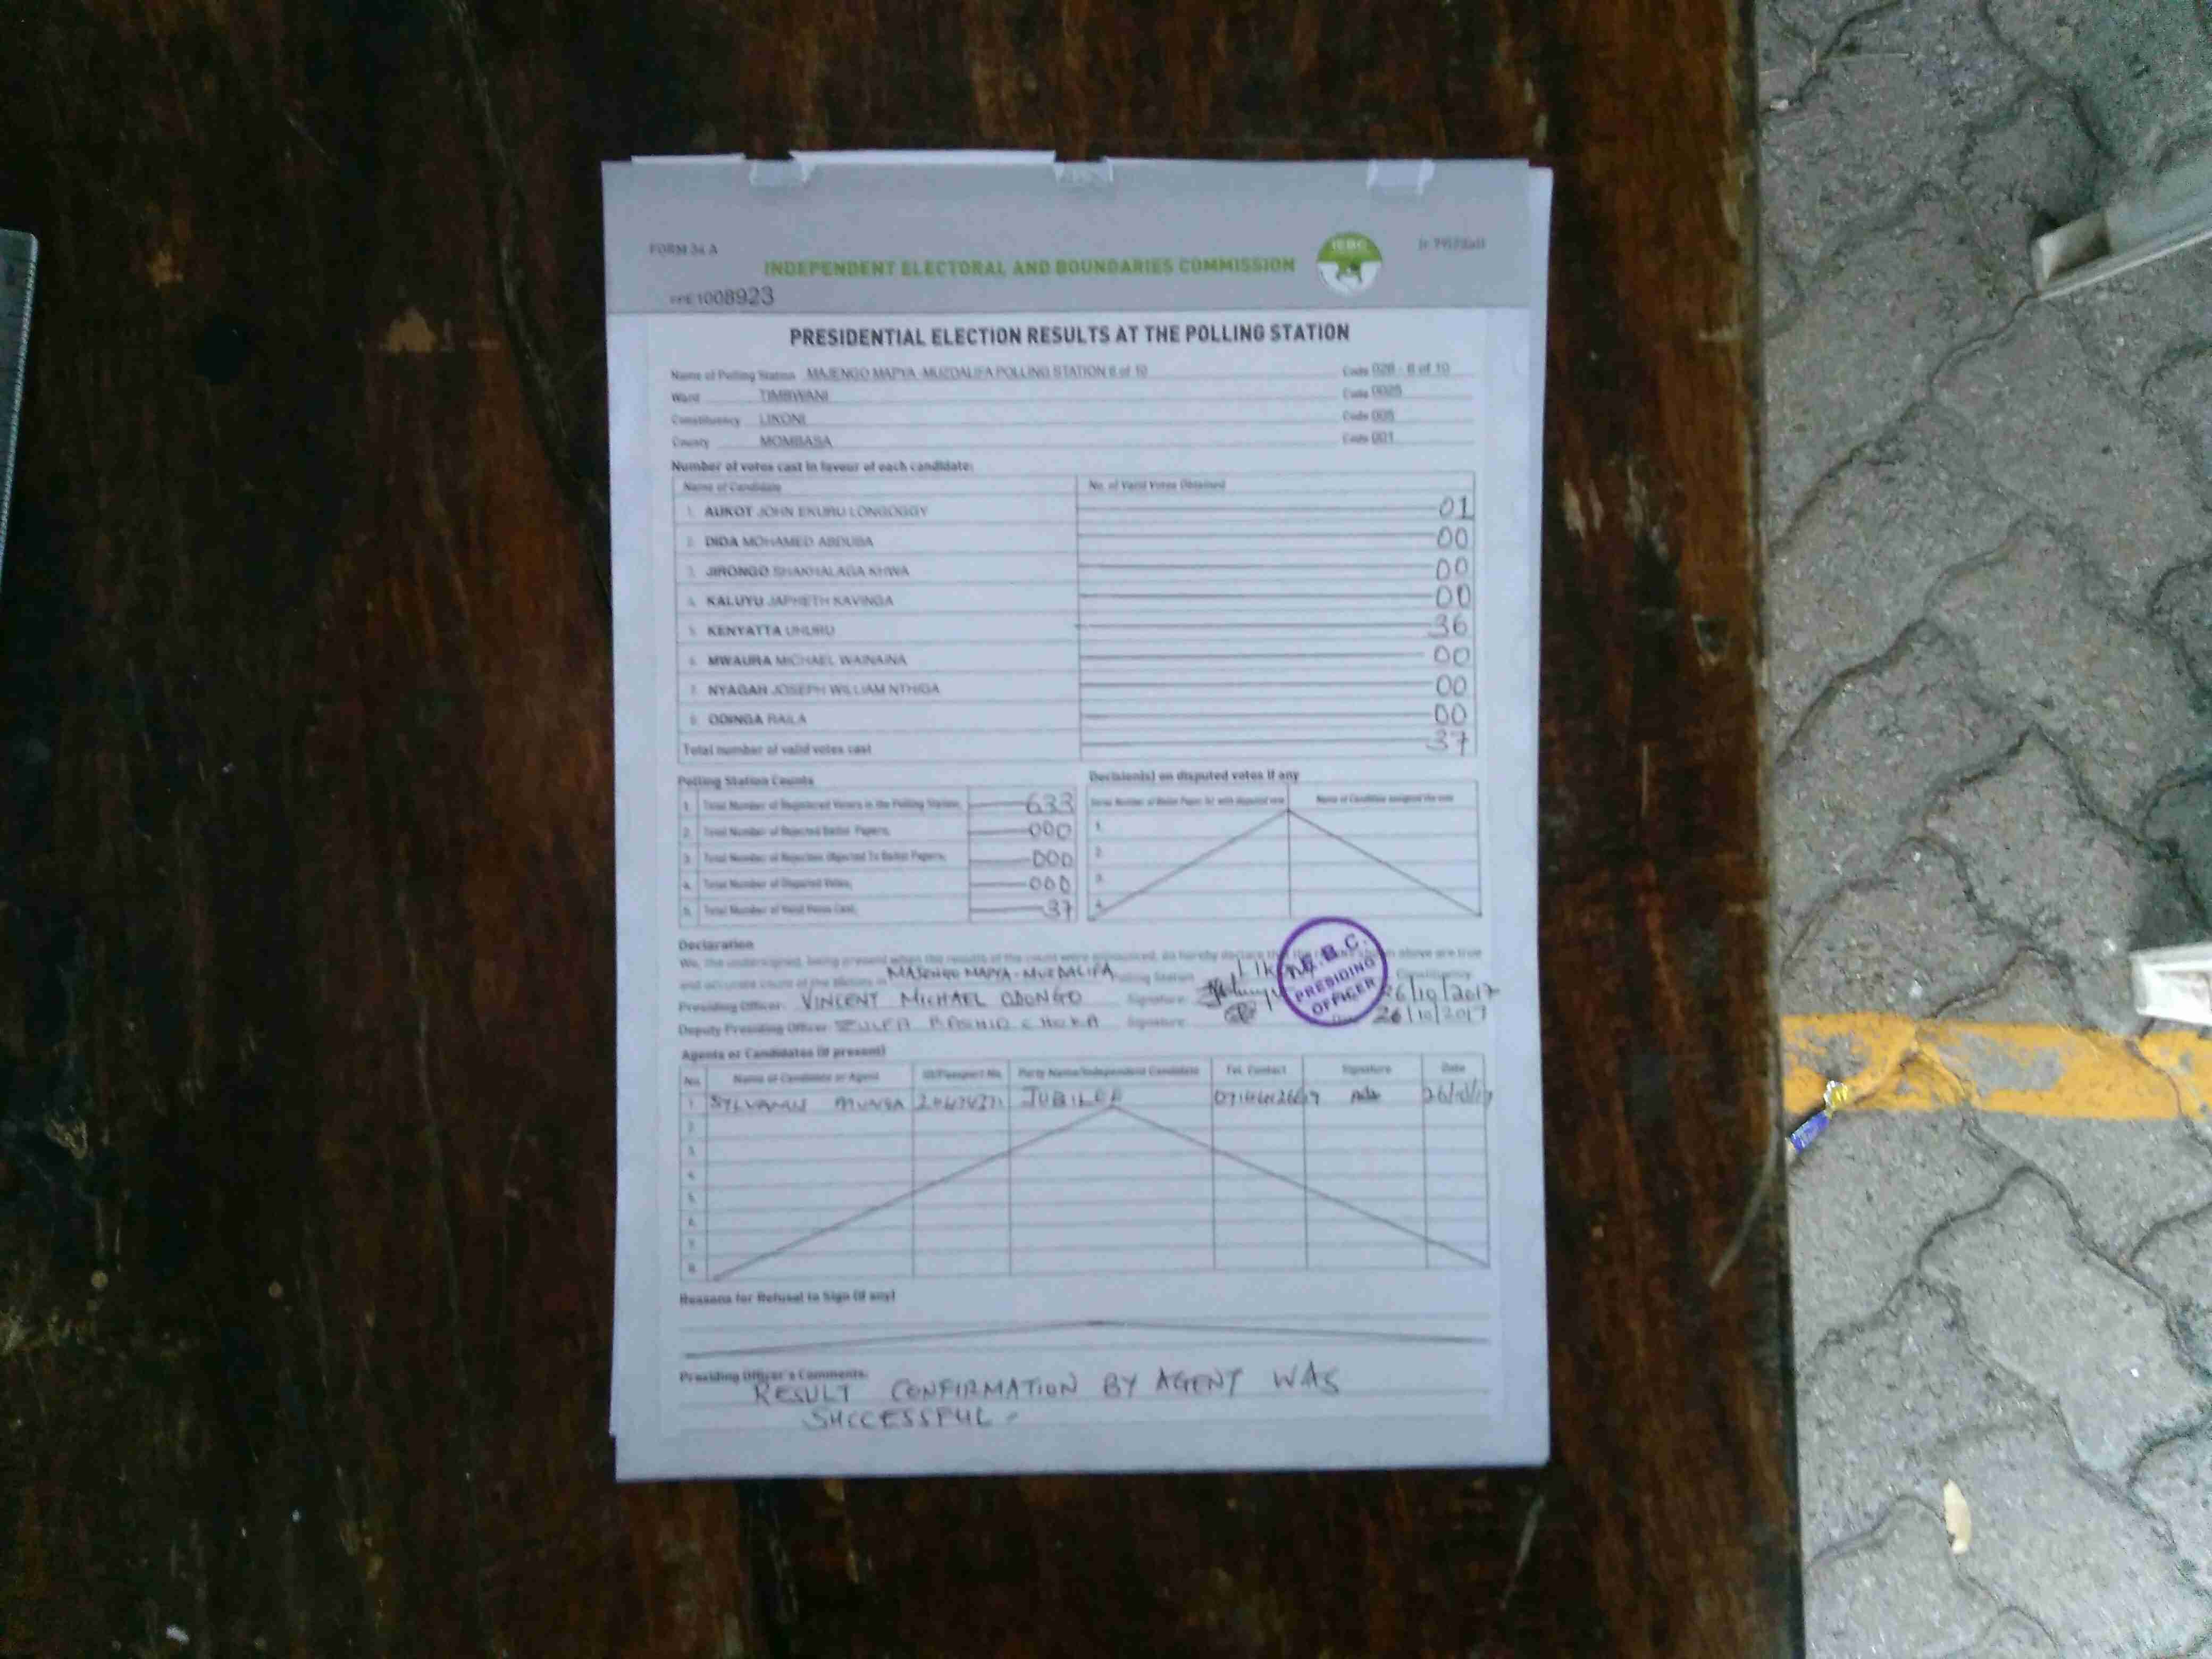 FORM 34 A
INDEPENDENT ELECTORAL AND BOUNDARIES COMMISSION
IEBC
1008923
PRESIDENTIAL ELECTION RESULTS AT THE POLLING STATION
Name of Polling Station MAJENGO MAPYA -MUZDALIFA POLLING STATION 8 of 10 Code 028 - 8 of 10
Ward TIMBWANI Code 0025
Constituency LIKONI Code 005
County MOMBASA Code 001
Number of votes cast in favour of each candidate:
Name of Candidate No. of Valid Votes Obtained
1. AUKOT JOHN EKURU LONGOGGY 01
2. DIDA MOHAMED ABDUBA 00
3. JIRONGO SHAKHALAGA KHWA 00
4. KALUYU JAPHETH KAVINGA 00
5. KENYATTA UHURU 36
6. MWAURA MICHAEL WAINAINA 00
7. NYAGAH JOSEPH WILLIAM NTHIGA 00
8. ODINGA RAILA 00
Total number of valid votes cast 37
Polling Station Counts
1. Total Number of Registered Voters in the Polling Station; 633
2. Total Number of Rejected Ballot Papers; 000
3. Total Number of Rejection Objected To Ballot Papers; 000
4. Total Number of Disputed Votes; 000
5. Total Number of Valid Votes Cast; 37
Decision(s) on disputed votes if any
Serial Number of Ballot Paper (s) with disputed vote Name of Candidate assigned the vote
1.
2.
3.
4.
Declaration
We, the undersigned, being present when the results of the count were announced, do hereby declare that the results shown above are true
and accurate count of the ballots in MAJENGO MAPYA - MUZDALIFA Polling Station Constituency
Presiding Officer: VINCENT MICHAEL ODONGO Signature: 26/10/2017
Deputy Presiding Officer Signature: 26/10/2017
I.E.B.C.
PRESIDING
OFFICER
Agents or Candidates (if present)
No. Name of Candidate or Agent ID/Passport No. Party Name/Independent Candidate Tel. Contact Signature Date
1 SYLVANUS JUBILEE 26/10/17
2.
3.
4.
5.
6.
7.
8.
Reasons for Refusal to Sign (if any)
Presiding Officer's Comments:
RESULT CONFIRMATION BY AGENT WAS
SUCCESSFUL